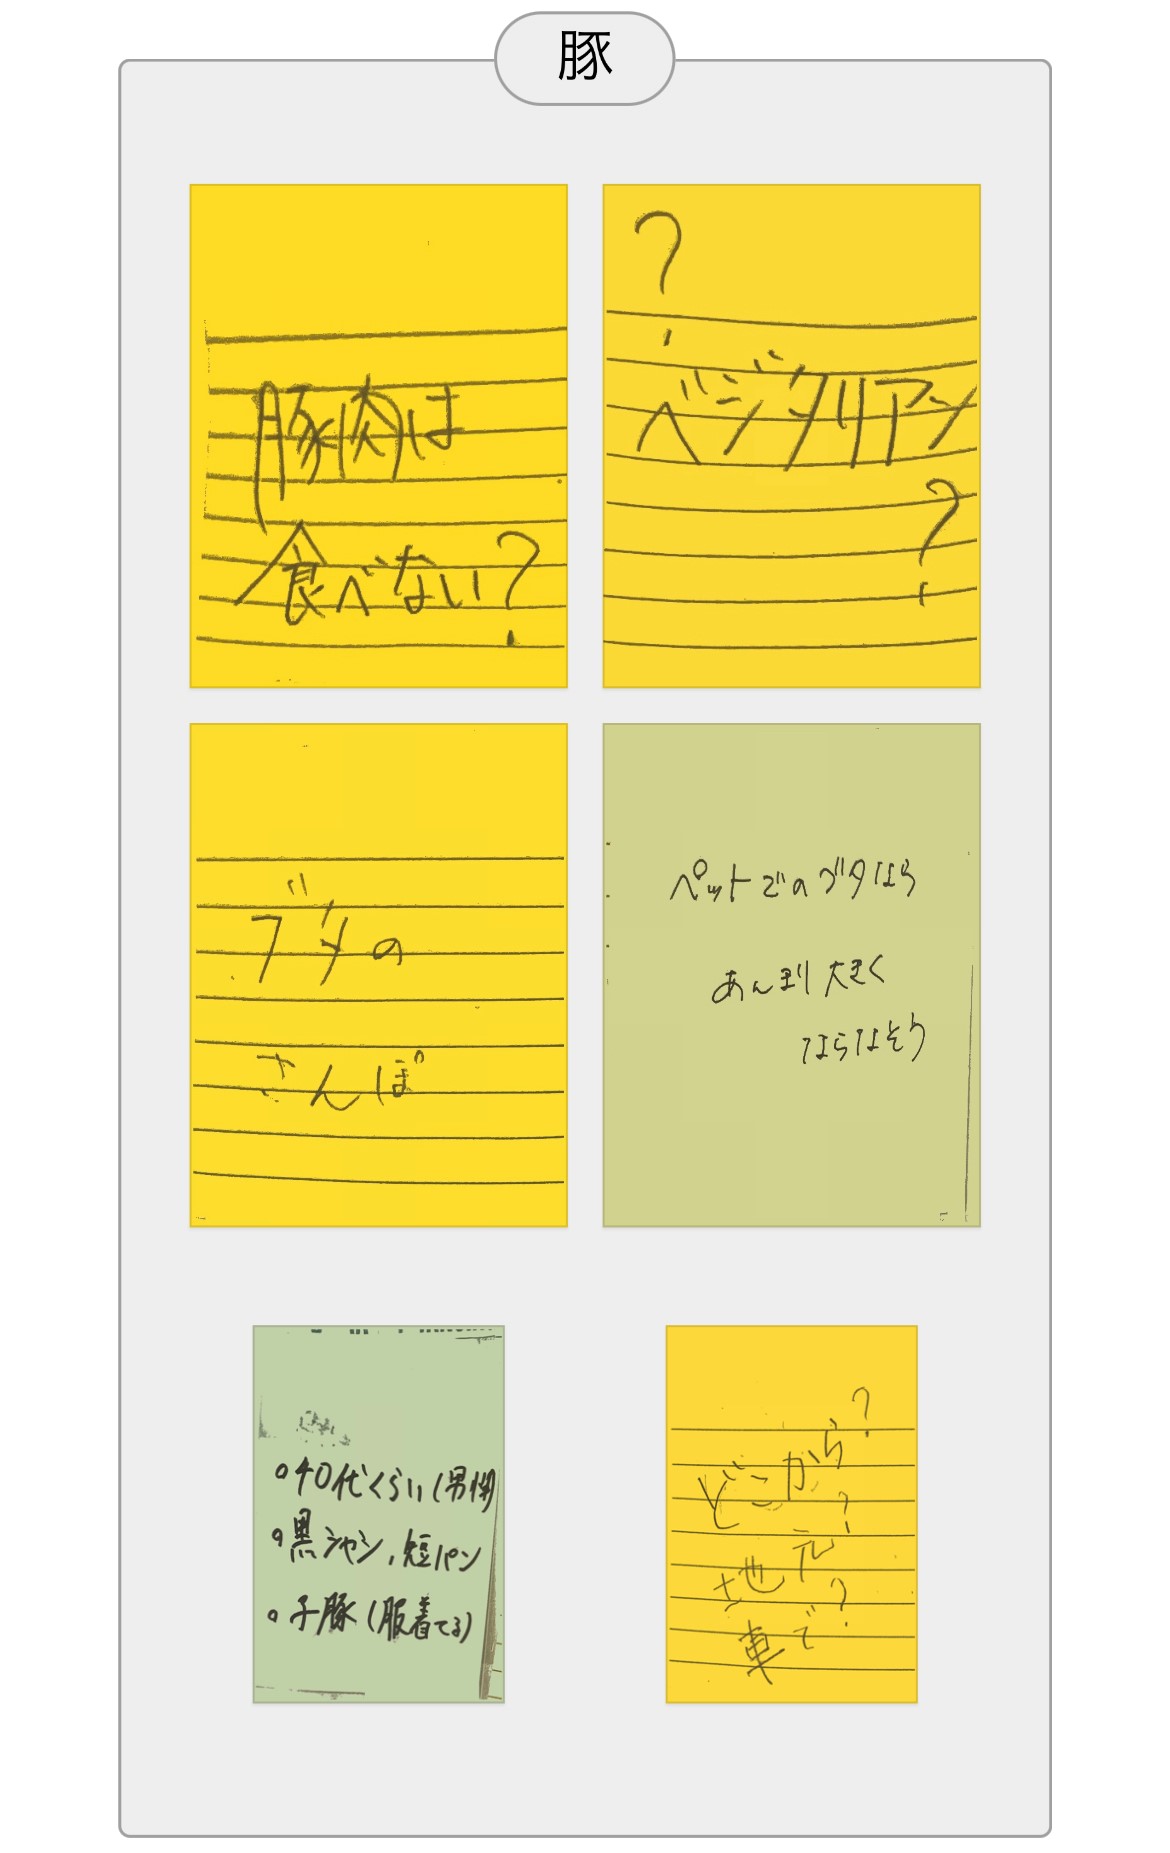 豚
豚肉は
食べない?
?
ベジタリアン
?
ブタの
さんぽ
ペットでのブタなら
あんまり大きく
ならなそう
○40代くらい(男性)
○黒シャツ,短パン
○子豚(服着てる)
どこから?
地元?
車で?